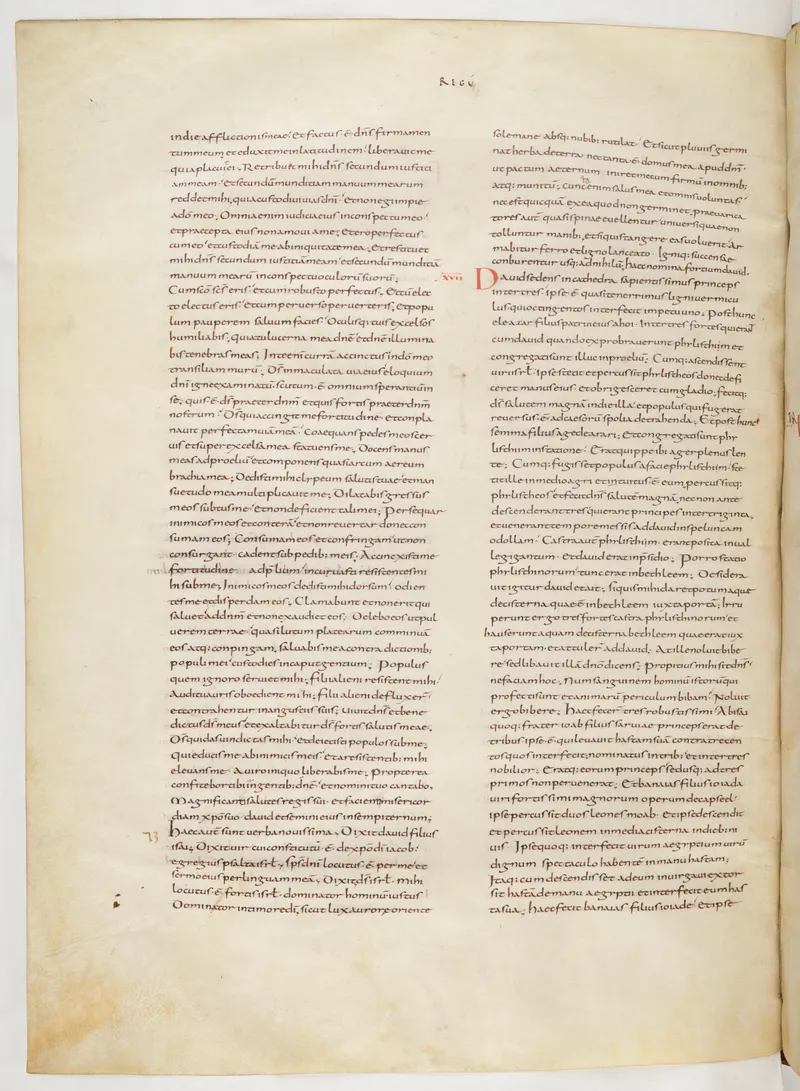 REGŪ
in die afflictionis meae; Et factus ē dn̄s firmamen
tum meum et eduxit me in latitudinem; liberauit me
quia placui ei; Retribuet mihi dn̄s secundum iustiti
am meam; et secundū munditiam manuum mearum
reddet mihi, quia custodiui uias dn̄i; et non egi impie
a dō meo; Omnia enim iudicia eius in conspectu meo;
et praecepta eius non amoui a me; et ero perfectus
cum eo; et custodiā me ab iniquitate mea; et restituet
mihi dn̄s secundum iustitiā meam; et secundū munditiā
manuum mearū in conspectu oculorū suorū;
Cum scō scs̄ eris; et cum robusto perfectus; Et cū elec
to electus eris; et cum peruerso peruerteris; et popu
lum pauperem saluum facies; Oculisq: tuis excelsos
humiliabis; quia tu lucerna mea dn̄e et dn̄e illumina
bis tenebras meas; In te enī currā accinctus in dō meo
transiliam murū; Ds̄ inmaculata uia eius eloquium
dn̄i igne examinatū; scutum ē omnium sperantiū in
se; quis ē ds̄ praeter dn̄m et quis fortis praeter dn̄m
nostrum; Ds̄ qui accingit me fortitudine; et conpla
nauit perfectam uiā meā; Coaequans pedes meos cer
uis et super excelsa mea statuens me; Docens manus
meas ad proeliū; et componens quasi arcum aereum
brachia mea; Dedisti mihi clypeum salutis tuae et man
suetudo mea multiplicauit me; Dilatabis gressus
meos subtus me; et non deficient tali mei; Persequar
inimicos meos et conterā; et non reuertar donec con
sumam eos; Consumam eos et confringam ut non
consurgant; cadent sub pedib: meis; Accinxisti me
fortitudine ad plium; incuruasti resistentes mi
hi sub me; Inimicos meos dedisti mihi dorsum; odien
tes me et disperdam eos; Clamabunt et non erit qui
saluet; ad dn̄m et non exaudiet eos; Delebo eos ut pul
uerem terrae; quasi lutum platearum comminuā
eos atq: conpingam; saluabis me a contradictionib:
populi mei; custodies in caput gentium; Populus
quem ignoro seruiet mihi; filii alieni resistent mihi;
Auditu auris oboedient mihi; filii alieni defluxer̄;
et contrahentur in angustiis suis; uiuit dn̄s et bene
dictus ds̄ meus et exaltabitur ds̄ fortis salutis meae;
Ds̄ qui das uindictas mihi; et deiecis populos sub me;
qui educis me ab inimicis meis; et a resistentib: mihi
eleuans me; A uiro iniquo liberabis me; Propterea
confitebor tibi in gentib: dn̄e; et nomini tuo cantabo;
Magnificanti salutes regis sui; et facienti misericor
diam xp̄o suo dauid et semini eius in sempiternum;
23
Haec aut̄ sunt uerba nouissima; Dixit dauid filius
isai; Dixit uir cui constitutū ē de xp̄o dī iacob;
egregius psalta isrl̄; sps̄ dn̄i locutus ē per me et
sermo eius per linguam meā; Dixit ds̄ isrl̄ mihi
locutus ē fortis isrl̄ dominator hominū iustus
Dominator in timore dī; sicut lux aurorae oriente
sole mane absq: nubib: rutilat; Et sicut pluuiis germi
nat herba de terra; nec tanta ē domus mea apud dn̄m;
ut pactum aeternum iniret mecum firmū in omnib:
atq: munitū; Cuncta enim salus mea et omnis uoluntas;
nec est quicquā ex ea quod non germinet; praeuarica
tores aut̄ quasi spinae euellentur uniuersi quae non
tolluntur manib; et si quis tangere eas uoluerit ar
mabitur ferro et ligno lanceato; Igniq: succensae
conburentur usq: ad nihilū; haec nomina fortium dauid;
XVII
Dauid sedens in cathedra sapientissimus princeps
inter tres; ipse ē quasi tenerrimus ligni uermicu
lus qui octingentos interfecit impetu uno; Post hunc
eleazar filius patrui eius ahoi; Inter tres fortes qui erant
cum dauid quando exprobrauerunt phylisthim et
congregati sunt illuc in proeliū; Cumq: ascendissent
uiri isrl̄ ipse stetit et percussit phylistheos donec defi
ceret manus eius et obrigesceret cum gladio; fecitq:
dn̄s salutem magnā in die illa; et populus qui fugerat
reuersus ē ad caesorū spolia detrahenda; Et post hunc
semma filius age de arari; et congregati sunt phy
listhim in statione; Erat quippe ibi ager plenus len
te; Cumq: fugisset populus a facie phylisthim; ste
tit ille in medio agri et tuitus ē eum percussitq:
phylistheos et fecit dn̄s salutē magnā; necnon ante
descenderant tres qui erant principes inter triginta;
et uenerant tempore messis ad dauid in speluncam
odollam; Castra aut̄ phylisthim erant posita in ual
le gigantum; et dauid erat in p̄sidio; Porro statio
phylisthinorum tunc erat in bethleem; Desidera
uit igitur dauid et ait; si quis mihi daret potum aquae
de cisterna quae ē in bethleem iuxta portā; Irru
perunt ergo tres fortes castra phylisthinorum et
hauserunt aquam de cisterna bethleem quae erat iux
ta portam; et attuler̄ ad dauid; At ille noluit bibe
re; sed libauit illā dn̄o dicens; propitius mihi sit dn̄s
ne faciam hoc; Num sanguinem hominū istorū qui
profecti sunt et animarū periculum bibam; Noluit
ergo bibere; Haec fecer̄ tres robustissimi; Abisai
quoq: frater ioab filius saruiae princeps erat de
tribus ipse ē qui leuauit hastam suā contra trecen
tos quos interfecit; nominatus in trib: et inter tres
nobilior; Eratq: eorum princeps sed usq: ad tres
primos non peruenerat; Et banaias filius ioiada
uiri fortissimi magnorum operum de capseel;
ipse percussit duos leones moab; et ipse descendit
et percussit leonem in media cisterna in dieb: ni
uis; Ipse quoq: interfecit uirum aegyptium uirū
dignum spectaculo habentē in manu hastam;
Itaq: cum descendisset ad eum in uirga ui extor
sit hastā de manu aegypti et interfecit eum has
ta sua; haec fecit banaias filius ioiadae; et ipse